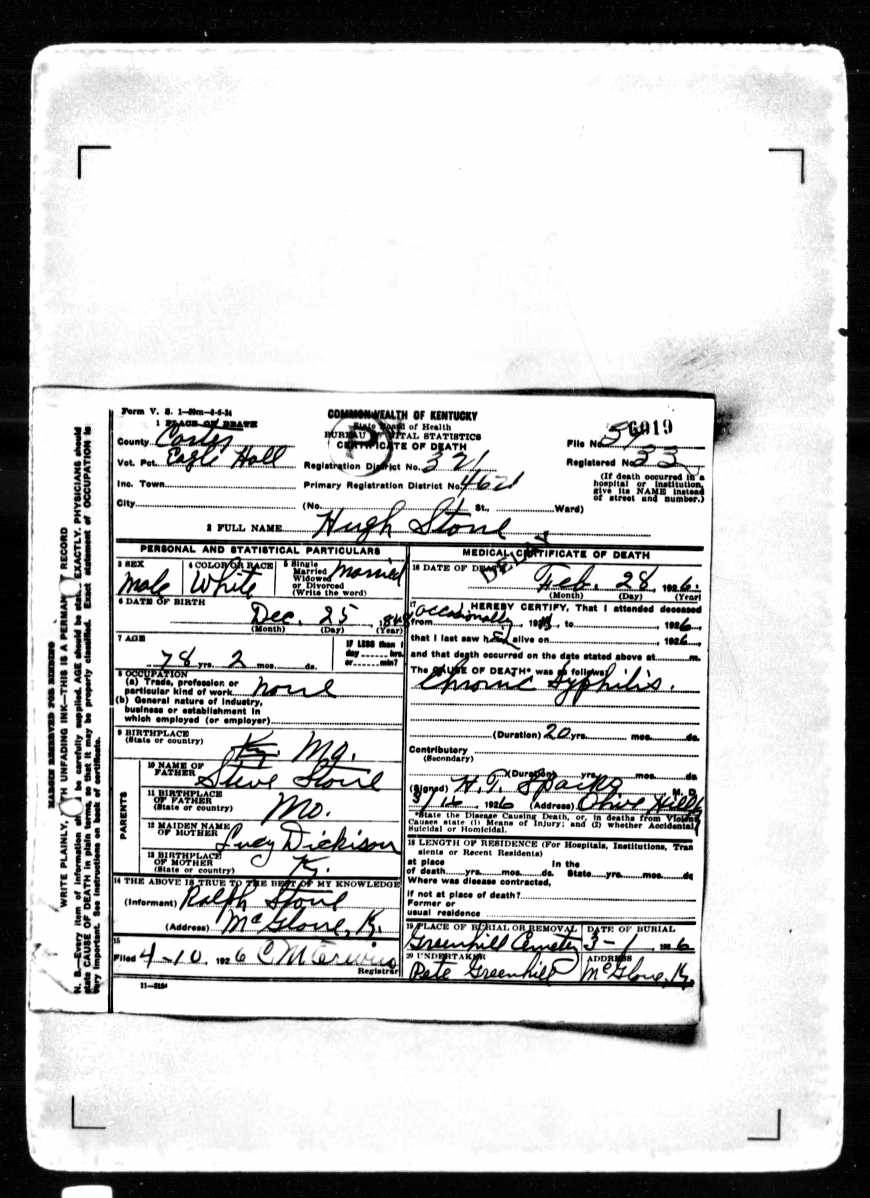 Form V. S. 1—50m—8-6-24
1 PLACE OF DEATH
COMMONWEALTH OF KENTUCKY
State Board of Health
BUREAU OF VITAL STATISTICS
CERTIFICATE OF DEATH
6019
File No. 54
County Carter
Vot. Pct. Eagle Hall
Registration District No. 321
Registered No. 33
Inc. Town
Primary Registration District No. 4621
(If death occurred in a hospital or institution, give its NAME instead of street and number.)
City
(No. St., Ward)
2 FULL NAME Hugh Stone
DELAY
PERSONAL AND STATISTICAL PARTICULARS
3 SEX
Male
4 COLOR OR RACE
White
5 Single
Married
Widowed
or Divorced
(Write the word)
Married
6 DATE OF BIRTH
Dec. 25, 1848
(Month) (Day) (Year)
7 AGE
78 yrs. 2 mos. ds.
IF LESS than 1
day hrs.
or min?
8 OCCUPATION
(a) Trade, profession or
particular kind of work none
(b) General nature of industry,
business or establishment in
which employed (or employer)
9 BIRTHPLACE
(State or country)
Ky. Mo.
PARENTS
10 NAME OF
FATHER
Steve Stone
11 BIRTHPLACE
OF FATHER
(State or country)
Mo.
12 MAIDEN NAME
OF MOTHER
Lucy Dickison
13 BIRTHPLACE
OF MOTHER
(State or country)
Ky.
14 THE ABOVE IS TRUE TO THE BEST OF MY KNOWLEDGE
(Informant) Ralph Stone
(Address) McGlone, K.
15
Filed 4-10, 1926
Registrar
11—3184
MEDICAL CERTIFICATE OF DEATH
16 DATE OF DEATH
Feb. 28, 1926.
(Month) (Day) (Year)
17 I HEREBY CERTIFY, That I attended deceased
occasionally
from , 19 , to , 1926,
that I last saw h alive on , 1926,
and that death occurred on the date stated above at m.
The CAUSE OF DEATH* was as follows:
Chronic Syphilis.
(Duration) 20 yrs. mos. ds.
Contributory
(Secondary)
(Duration) yrs. mos. ds.
(Signed) H. T. Sparks M. D.
3/16, 1926 (Address) Olive Hill
*State the Disease Causing Death, or, in deaths from Violent
Causes state (1) Means of Injury; and (2) whether Accidental,
Suicidal or Homicidal.
18 LENGTH OF RESIDENCE (For Hospitals, Institutions, Tran
sients or Recent Residents)
at place In the
of death yrs. mos. ds. State yrs. mos. ds.
Where was disease contracted,
If not at place of death?
Former or
usual residence
19 PLACE OF BURIAL OR REMOVAL
Greenhill Cemetery
DATE OF BURIAL
3-1, 1926
20 UNDERTAKER
Pete Greenhill
ADDRESS
McGlone, Ky.
MARGIN RESERVED FOR BINDING
WRITE PLAINLY, WITH UNFADING INK—THIS IS A PERMANENT RECORD
N. B.—Every item of information should be carefully supplied. AGE should be stated EXACTLY. PHYSICIANS should
state CAUSE OF DEATH in plain terms, so that it may be properly classified. Exact statement of OCCUPATION is
very important. See instructions on back of certificate.